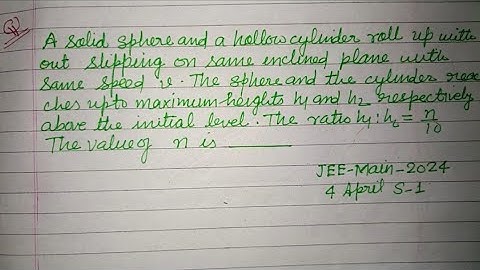 Q
A solid sphere and a hollow cylinder roll up with
out slipping on same inclined plane with
same speed v. The sphere and the cylinder rea
ches upto maximum heights h₁ and h₂ respectively
above the initial level. The ratio h₁:h₂ = n/10
The value of n is ______
JEE-Main-2024
4 April S-1